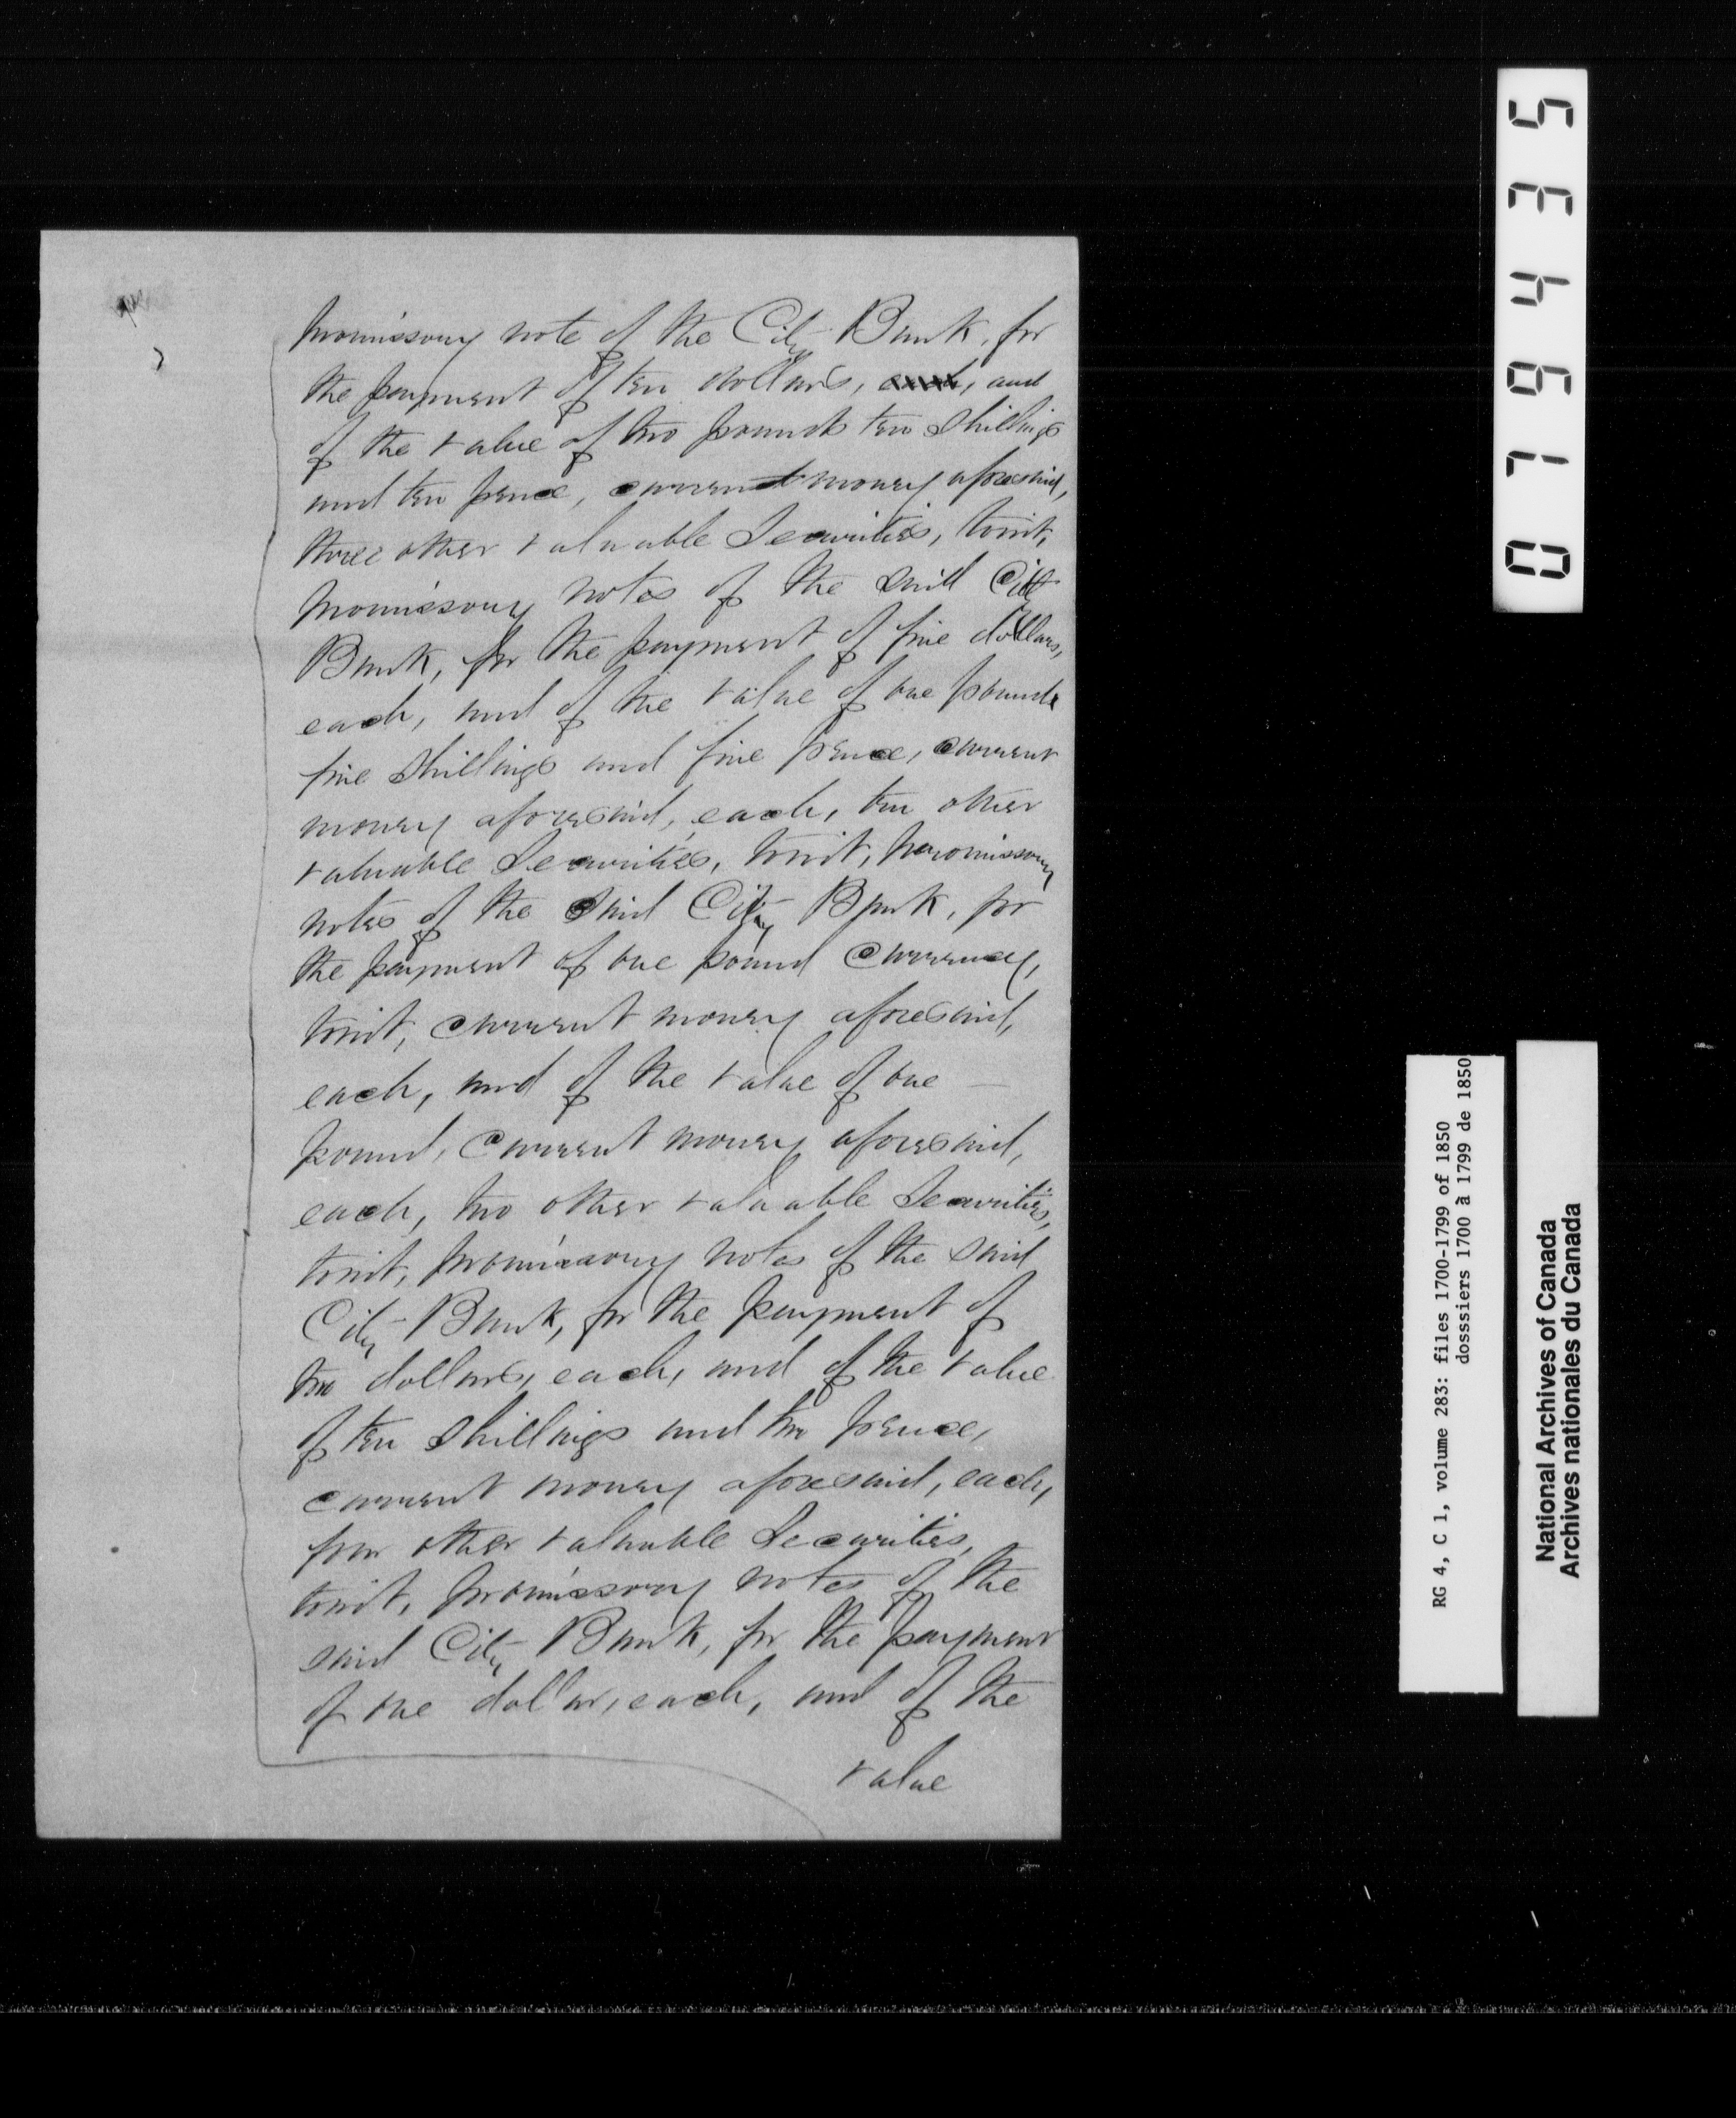 promissory note of the City Bank, for
the payment of ten dollars, each, and
of the value of two pounds ten shillings
and ten pence, current money aforesaid,
three other valuable Securities, towit,
promissory notes of the said City
Bank, for the payment of five dollars,
each, and of the value of one pound
five shillings and five pence, current
money aforesaid, each, ten other
valuable Securities, towit, promissory
notes of the said City Bank, for
the payment of one pound Currency,
towit, current money aforesaid,
each, and of the value of one —
pound, Current money aforesaid,
each, two other valuable Securities,
towit, promissory notes of the said
City Bank, for the payment of
two dollars, each, and of the value
of ten shillings and two pence,
current money aforesaid, each,
four other valuable Securities,
towit, promissory notes of the
said City Bank, for the payment
of one dollar, each, and of the
value
079435
RG 4, C 1, volume 283: files 1700-1799 of 1850
dosssiers 1700 à 1799 de 1850
National Archives of Canada
Archives nationales du Canada